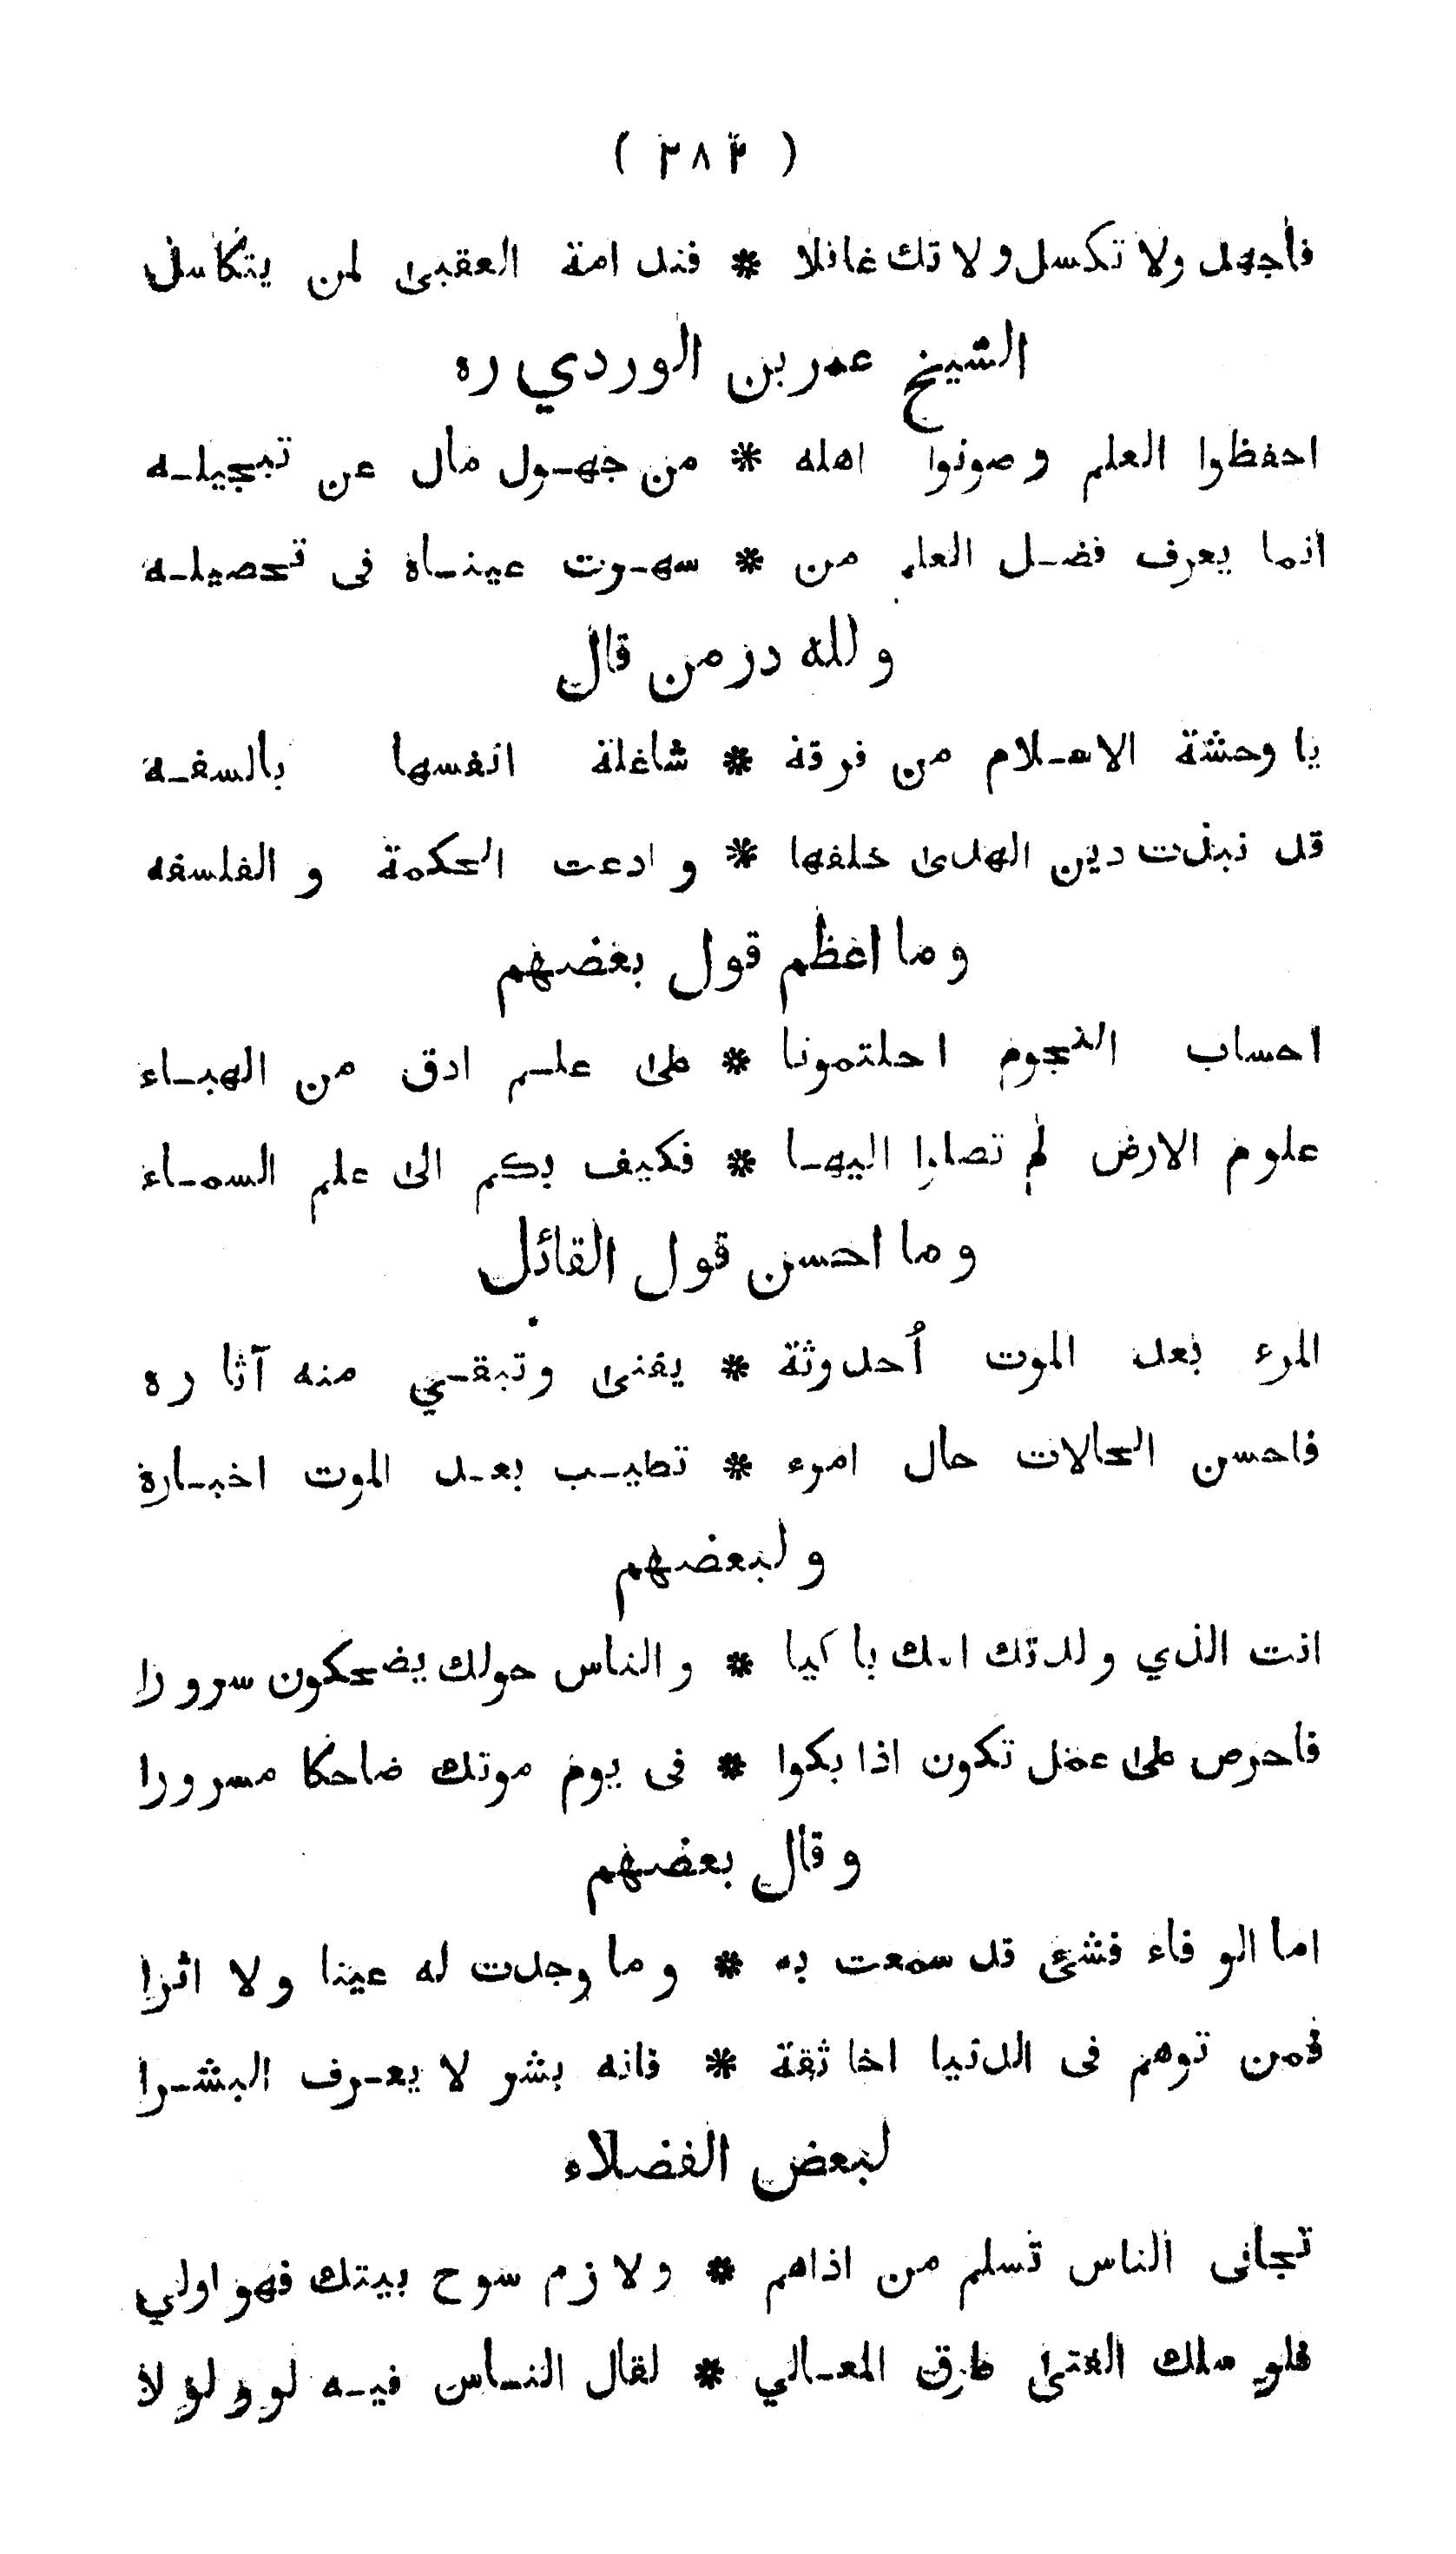 ( ٣٨٢ )
فأجهد ولا تكسل ولا تك غافلا * فندامة العقبى لمن يتكاسل
الشيخ عمر بن الوردي ره
احفظوا العلم وصونوا اهله * من جهول مال عن تبجيله
انما يعرف فضل العلم من * سهرت عيناه فى تحصيله
ولله در من قال
يا وحشة الاسلام من فرقة * شاغلة انفسها بالسفه
قد نبذت دين الهدى خلفها * وادعت الحكمة و الفلسفه
وما اعظم قول بعضهم
احساب النجوم احلتمونا * على علم ادق من الهباء
علوم الارض لم تصلوا اليها * فكيف بكم الى علم السماء
وما احسن قول القائل
المرء بعد الموت أُحدوثة * يفنى وتبقي منه آثاره
فاحسن الحالات حال امرء * تطيب بعد الموت اخبارة
ولبعضهم
انت الذي ولدتك امك باكيا * والناس حولك يضحكون سرورا
فاحرص على عمل تكون اذا بكوا * فى يوم موتك ضاحكا مسرورا
وقال بعضهم
اما الوفاء فشئ قد سمعت به * وما وجدت له عينا ولا اثرا
فمن توهم فى الدنيا اخا ثقة * فانه بشر لا يعرف البشرا
لبعض الفضلاء
تجافى الناس تسلم من اذاهم * ولازم سوح بيتك فهو اولي
فلو سلك الفتى طرق المعالي * لقال الناس فيه لو ولولا